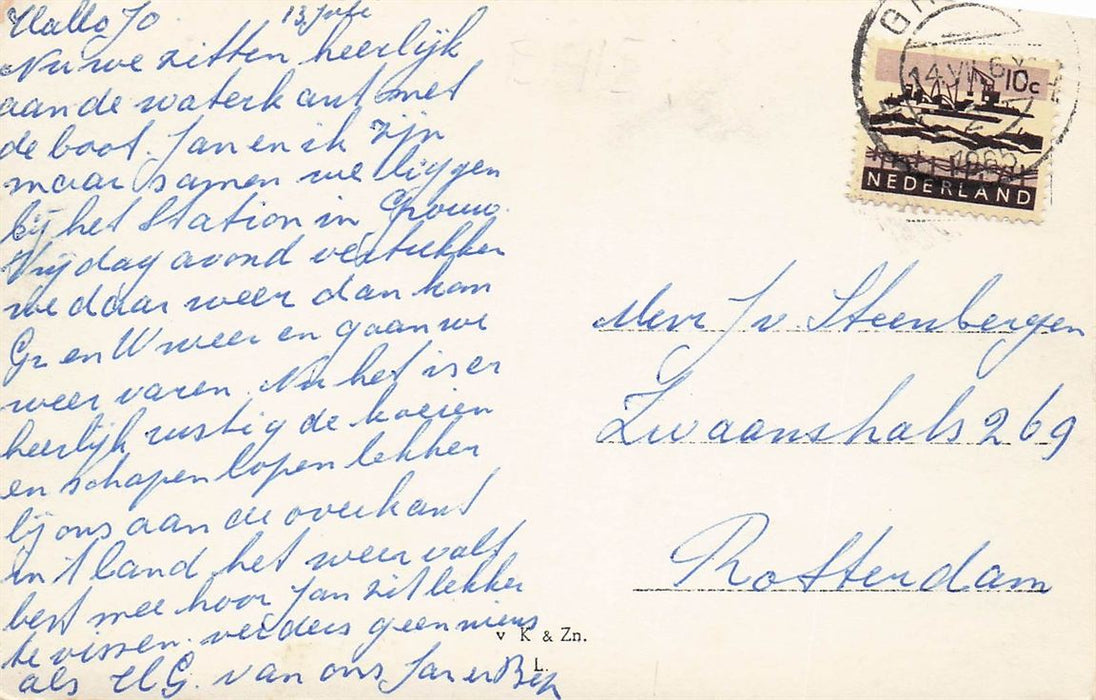 Hallo Jo 13 Julie
Nu we zitten heerlijk
aan de waterkant met
de boot. Jan en ik zijn
maar samen we liggen
bij het Station in Grouw.
Vrijdag avond vertrekken
we daar weer dan kom
Gr en W weer en gaan we
weer varen. Nu het is er
heerlijk rustig de koeien
en schapen lopen lekker
bij ons aan de overkant
in 't land het weer valt
best mee hoor Jan zit lekker
te vissen. verders geen niews
als H.G. van ons Jan en Bep
v K & Zn.
L.
14 VII 6
1965
10c
NEDERLAND
Mevr J v. Steenbergen
Zwaanshals 269
Rotterdam